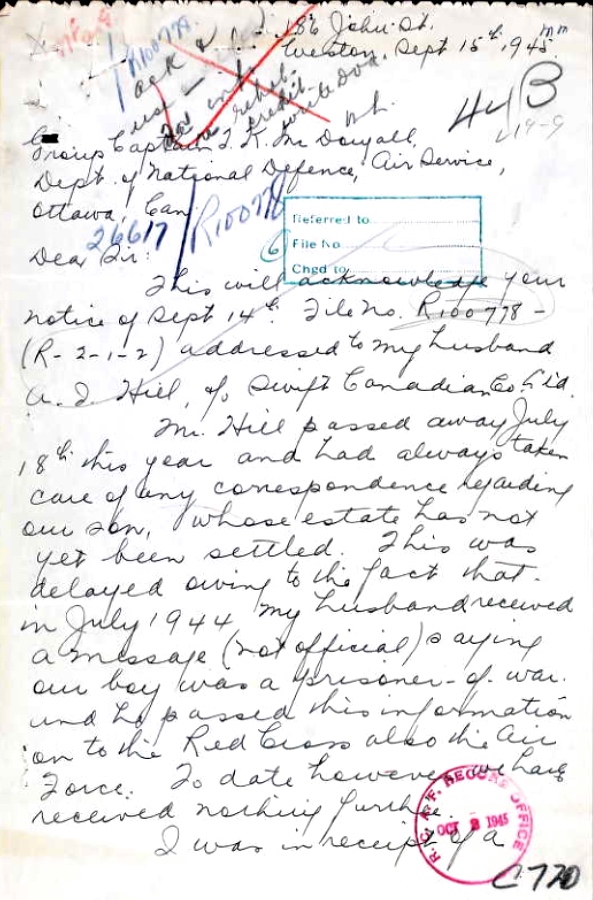 186 John St.
Weston, Sept 15th, 1945
R100778
ack &
use
credit
44B
Group Captain T. K. McDougall,
Dept. of National Defence, Air Service,
Ottawa, Can.
26617 / R100778
Referred to
File No
Chgd to
Dear Sir:
This will acknowledge your
notice of Sept 14th. File No. R100778 -
(R-2-1-2) addressed to my husband
A. J. Hill, c/o Swift Canadian Co Ltd.
Mr. Hill passed away July
18th this year and had always taken
care of any correspondence regarding
our son, whose estate has not
yet been settled. This was
delayed owing to the fact that
in July 1944 my husband received
a message (not official) saying
our boy was a prisoner-of-war.
and he passed this information
on to the Red Cross also the Air
Force. To date however we have
received nothing further.
I was in receipt of a
R.C.A.F. RECORDS OFFICE
OCT 2 1945
C770